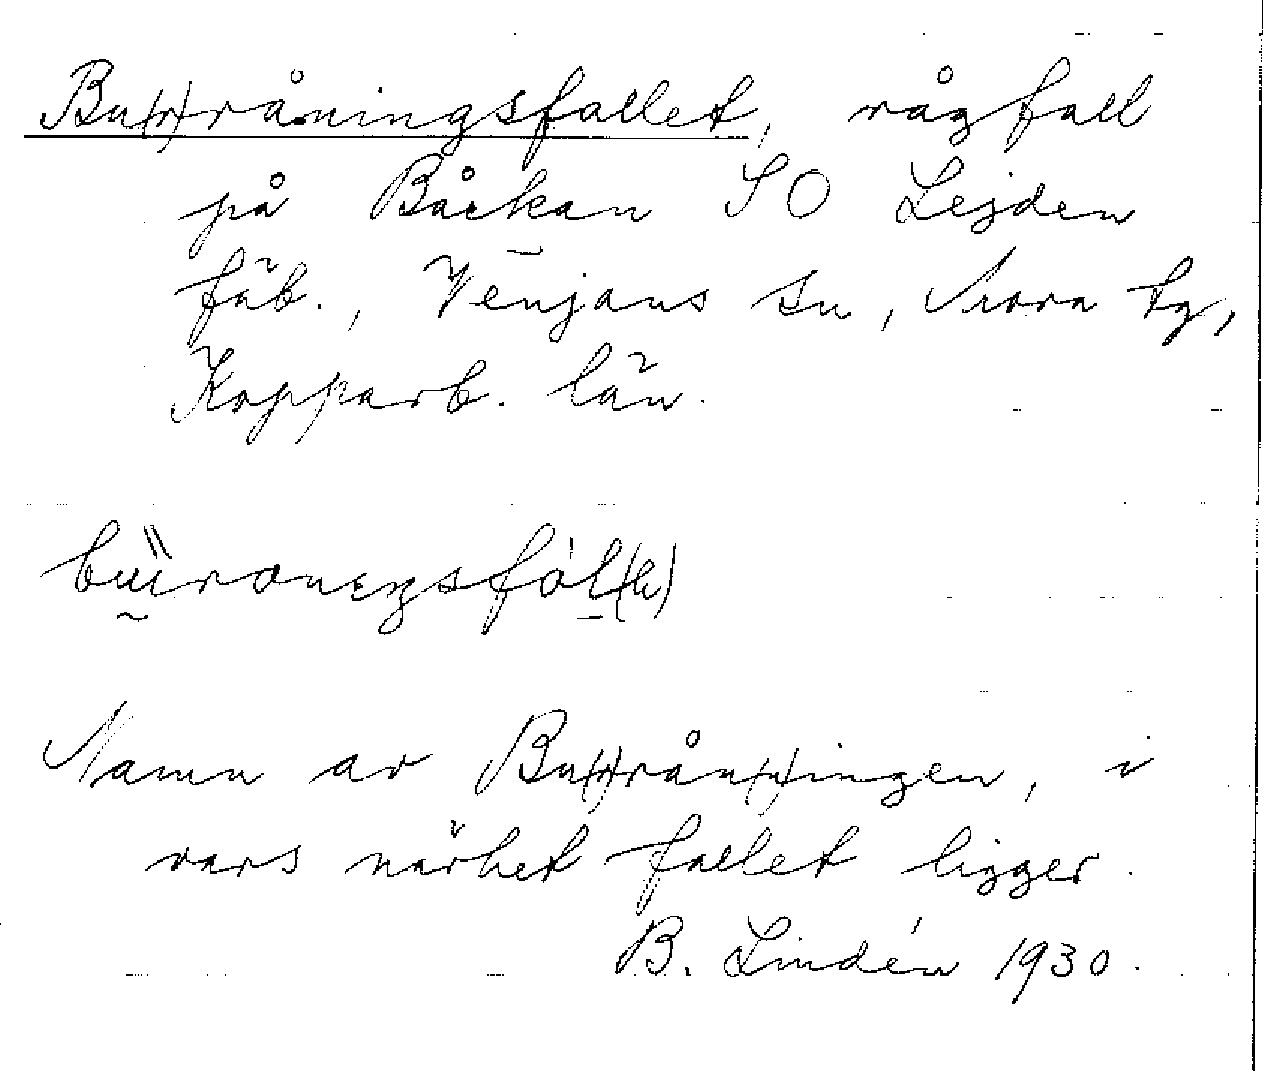 Bu(r)råningsfallet, rågfall
på Båckan SO Lejden
fäb., Venjans sn, Mora tg,
Kopparb. län.
Namn av Bu(r)rån(n)ingen, i
vars närhet fallet ligger.
B. Lindén 1930.